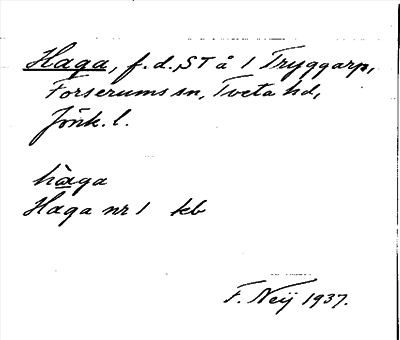 Haga, f.d. ST å 1 Tryggarp,
Forserums sn, Tveta hd,
Jönk. l.
hàga
Haga nr 1 kb
F. Neij 1937.